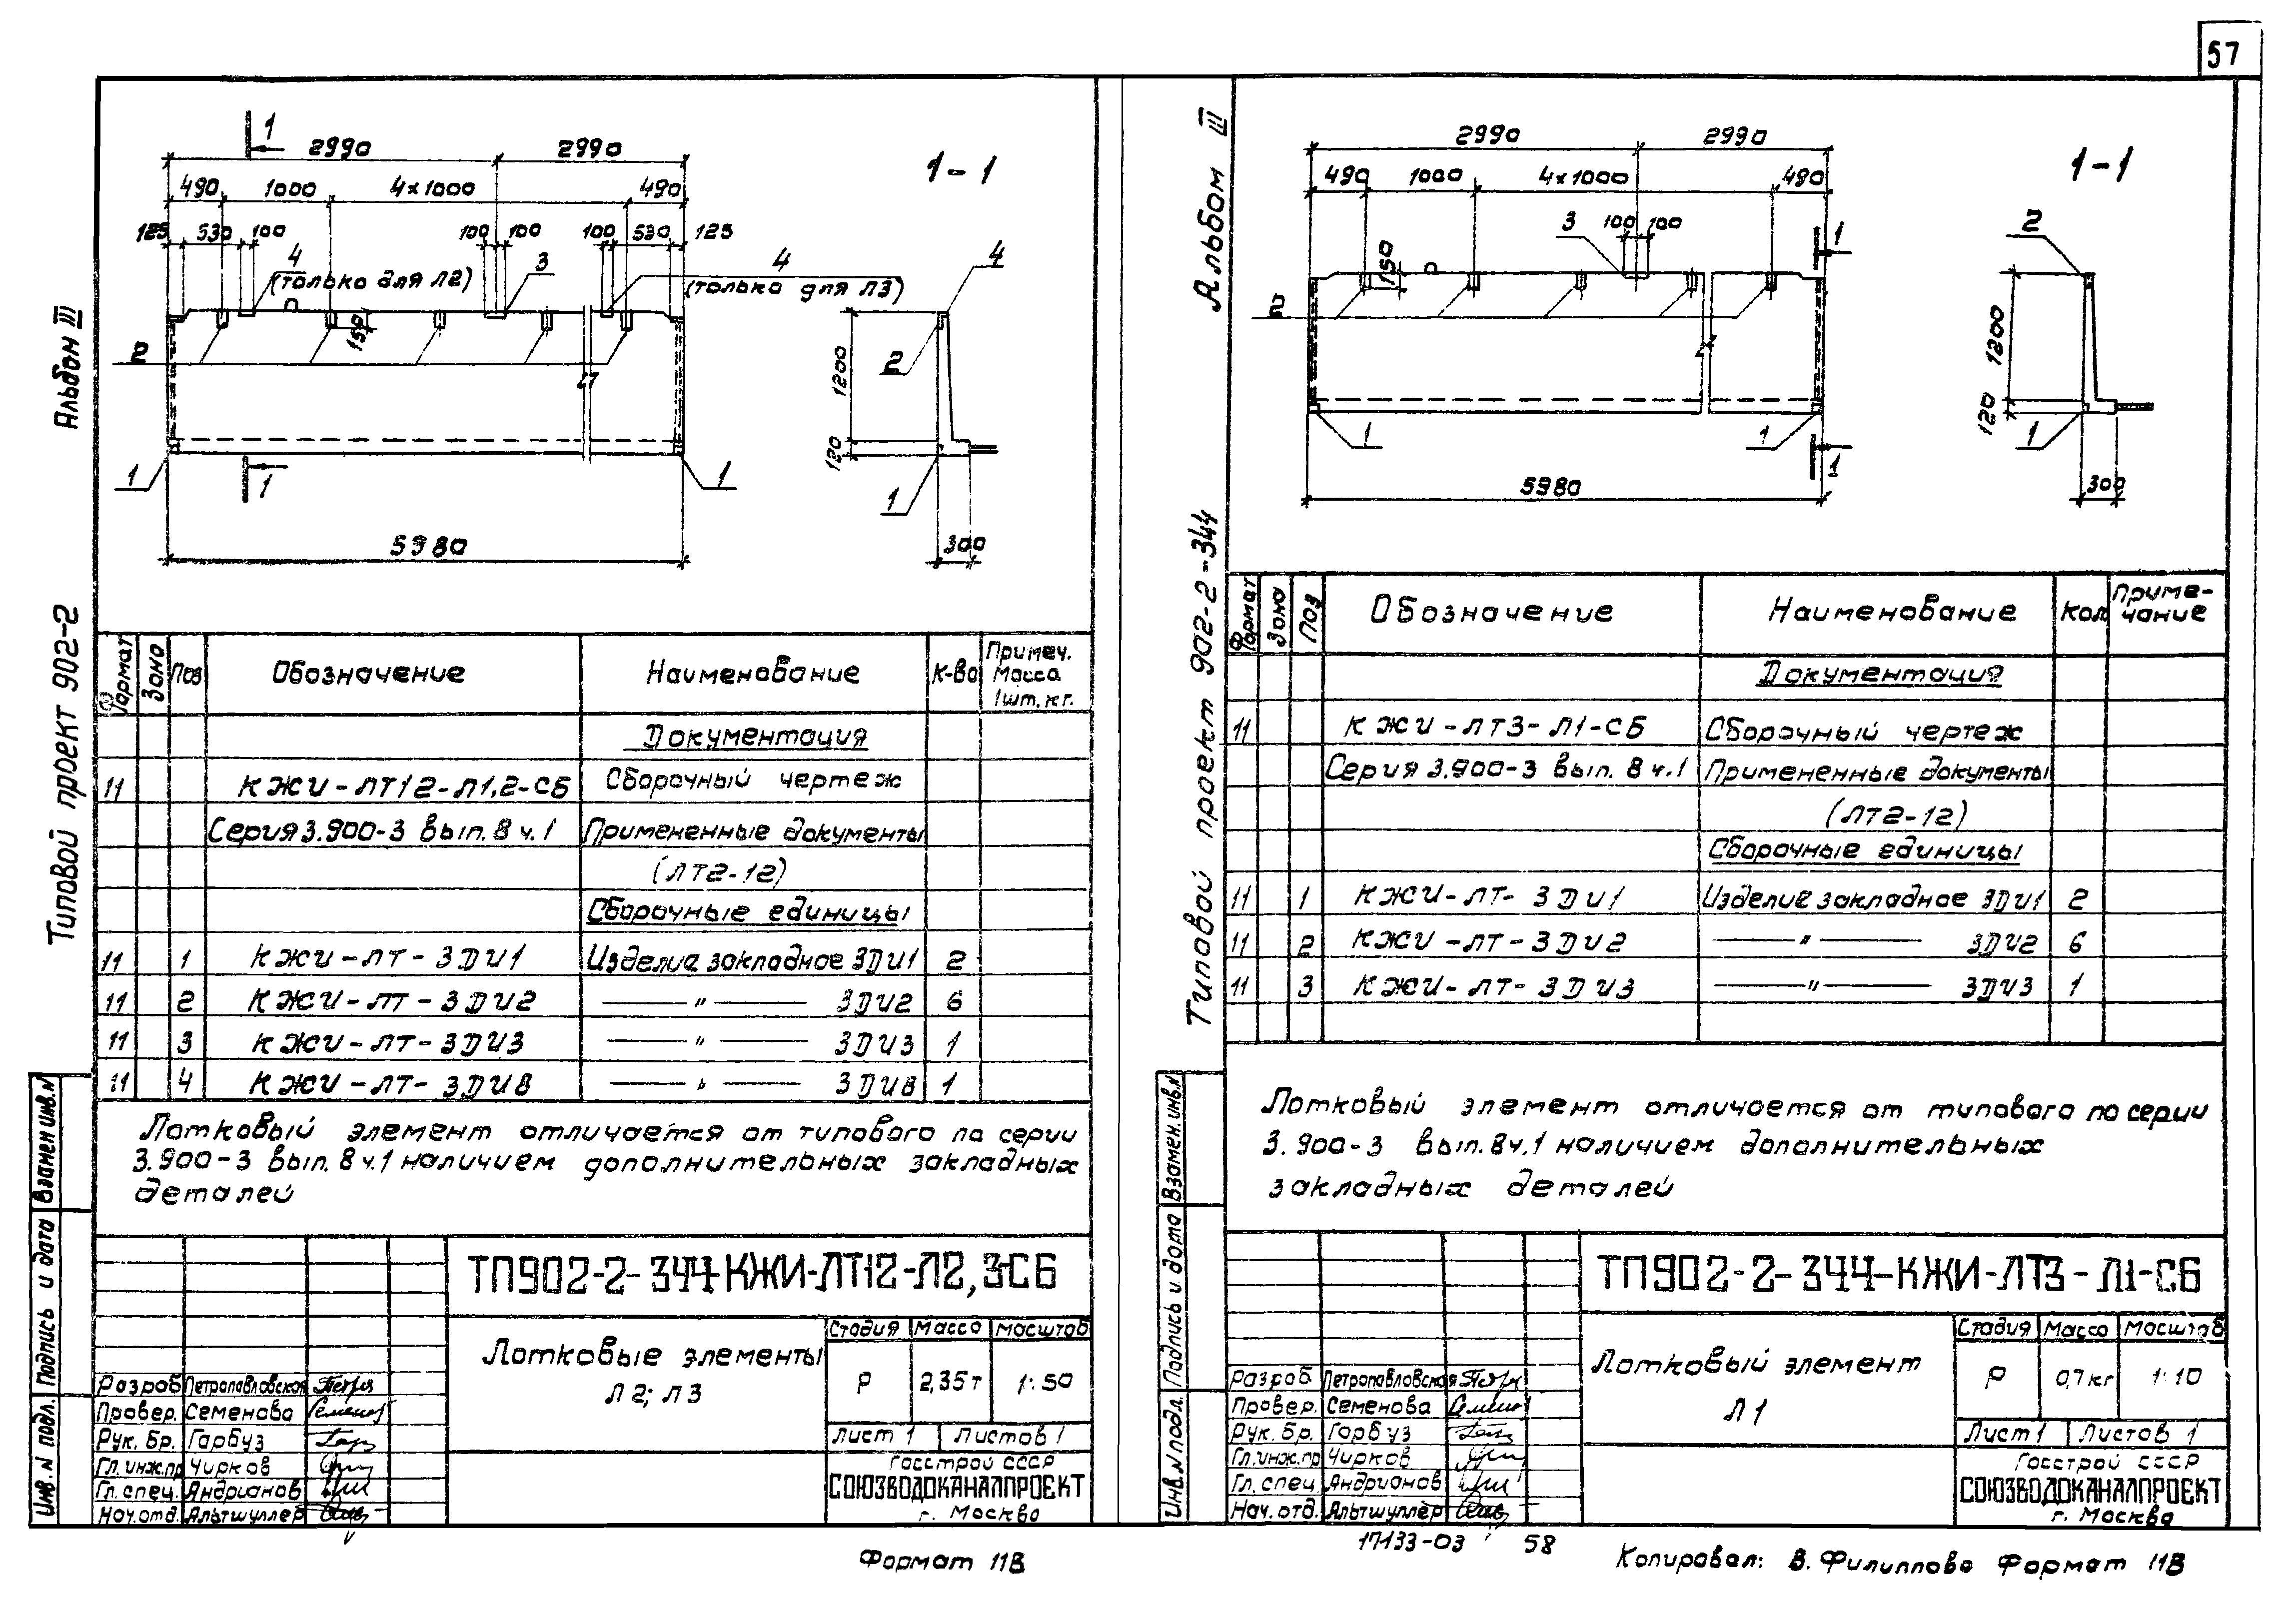 57
Альбом III
Типовой проект 902-2
1
2990 2990
490 1000 4×1000 490
125 530 100 100 100 100 530 125
4 3 4
(только для Л2) (только для Л3)
150
2
1 1 1
5980
1-1
4
2
1200
120
1
300
Формат Зона Поз Обозначение Наименование К-во Примеч. Масса 1шт, кг.
Документация
11 КЖИ-ЛТ12-Л1,2-СБ Сборочный чертеж
Серия 3.900-3 вып. 8 ч.1 Примененные документы
(ЛТ2-12)
Сборочные единицы
11 1 КЖИ-ЛТ-3DИ1 Изделие закладное 3DИ1 2
11 2 КЖИ-ЛТ-3DИ2 —"— 3DИ2 6
11 3 КЖИ-ЛТ-3DИ3 —"— 3DИ3 1
11 4 КЖИ-ЛТ-3DИ8 —"— 3DИ8 1
Лотковый элемент отличается от типового по серии
3.900-3 вып. 8 ч.1 наличием дополнительных закладных
деталей
Взамен инв.N
Подпись и дата
Инв. N подл.
ТП902-2-344-КЖИ-ЛТ12-Л2,3-СБ
Лотковые элементы
Л2; Л3
Стадия Масса Масштаб
Р 2,35т 1:50
Лист 1 Листов 1
Госстрой СССР
СОЮЗВОДОКАНАЛПРОЕКТ
г. Москва
Разраб Петропавловская
Провер. Семенова
Рук. бр. Гарбуз
Гл.инж.пр Чирков
Гл. спец. Андрианов
Нач.отд. Альтшуллер
Формат 11В
Альбом III
Типовой проект 902-2-344
2990 2990
490 1000 4×1000 490
3 100 100
1
150
2
1 1
1
5980
1-1
2
1200
120
1
300
Формат Зона Поз Обозначение Наименование Кол Примечание
Документация
11 КЖИ-ЛТ3-Л1-СБ Сборочный чертеж
Серия 3.900-3 вып. 8 ч.1 Примененные документы
(ЛТ2-12)
Сборочные единицы
11 1 КЖИ-ЛТ-3DИ1 Изделие закладное 3DИ1 2
11 2 КЖИ-ЛТ-3DИ2 —"— 3DИ2 6
11 3 КЖИ-ЛТ-3DИ3 —"— 3DИ3 1
Лотковый элемент отличается от типового по серии
3.900-3 вып. 8 ч.1 наличием дополнительных
закладных деталей
Взамен. инв.N
Подпись и дата
Инв.N подл.
ТП902-2-344-КЖИ-ЛТ3-Л1-СБ
Лотковый элемент
Л1
Стадия Масса Масштаб
Р 0,7кг 1:10
Лист 1 Листов 1
Госстрой СССР
СОЮЗВОДОКАНАЛПРОЕКТ
г. Москва
Разраб. Петропавловская
Провер. Семенова
Рук. бр. Гарбуз
Гл.инж.пр Чирков
Гл. спец Андрианов
Нач. отд. Альтшуллер
17133-03 58
Копировал: В. Филиппова Формат 11В